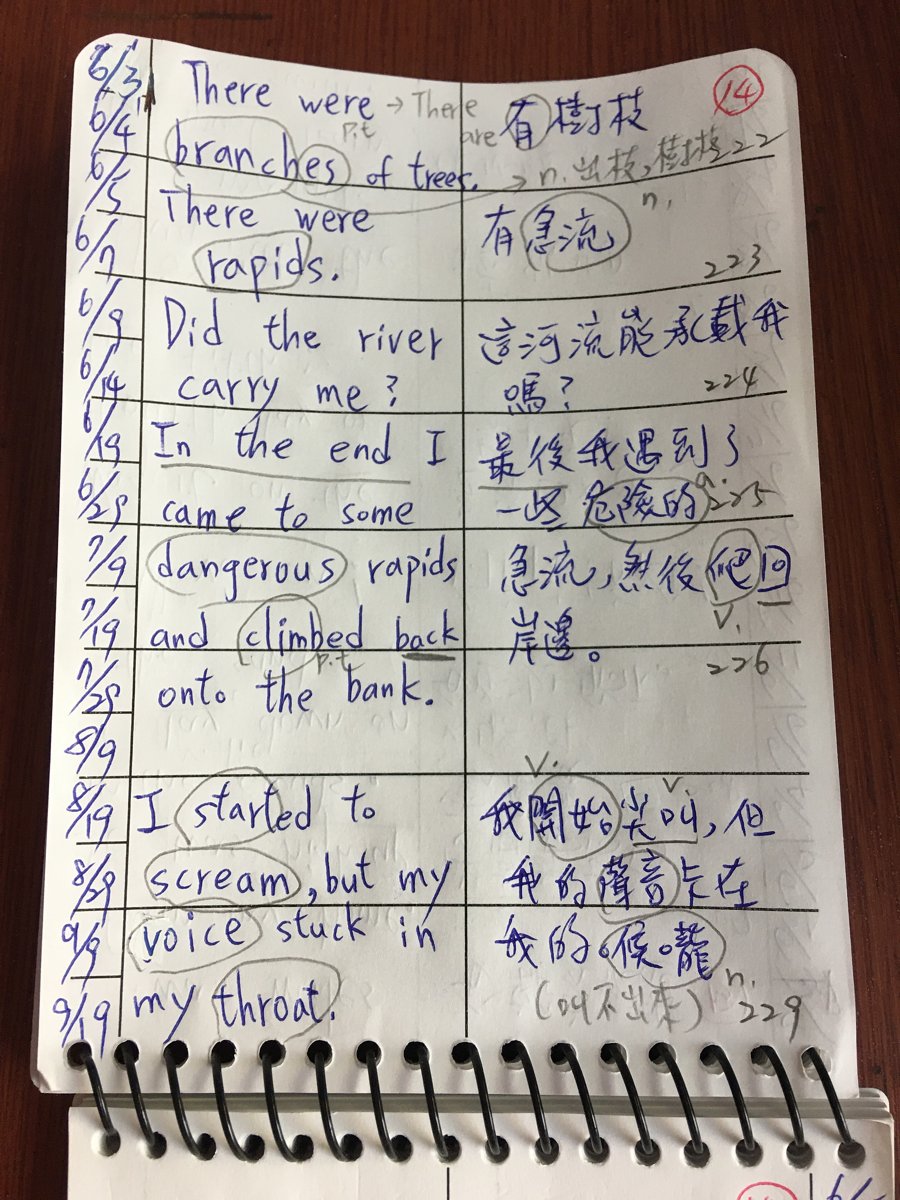 6/3
6/4
6/5
6/7
6/9
6/14
6/19
6/29
7/9
7/19
7/29
8/9
8/19
8/29
9/9
9/19
14
There were → There are
p.t
有樹枝
branches of trees. → n. 樹枝 222
There were
rapids.
有急流 n.
223
Did the river
carry me?
這河流能承載我
嗎? 224
In the end I
came to some
dangerous rapids
and climbed back
p.t
onto the bank.
最後我遇到了
一些危險的 a. 225
急流,然後爬回
v.
岸邊。 226
I started to
scream, but my
voice stuck in
my throat.
v. v.
我開始尖叫,但
我的聲音卡在
我的喉嚨
n.
(叫不出來) 229